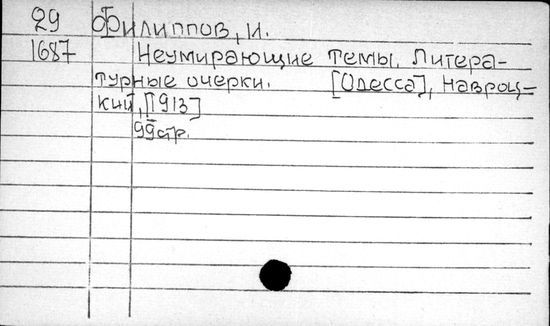 29 Филиппов, И.
1687 Неумирающие темы. Литера-
турные очерки. [Одесса], Навроц-
кий, [1913]
99 стр.